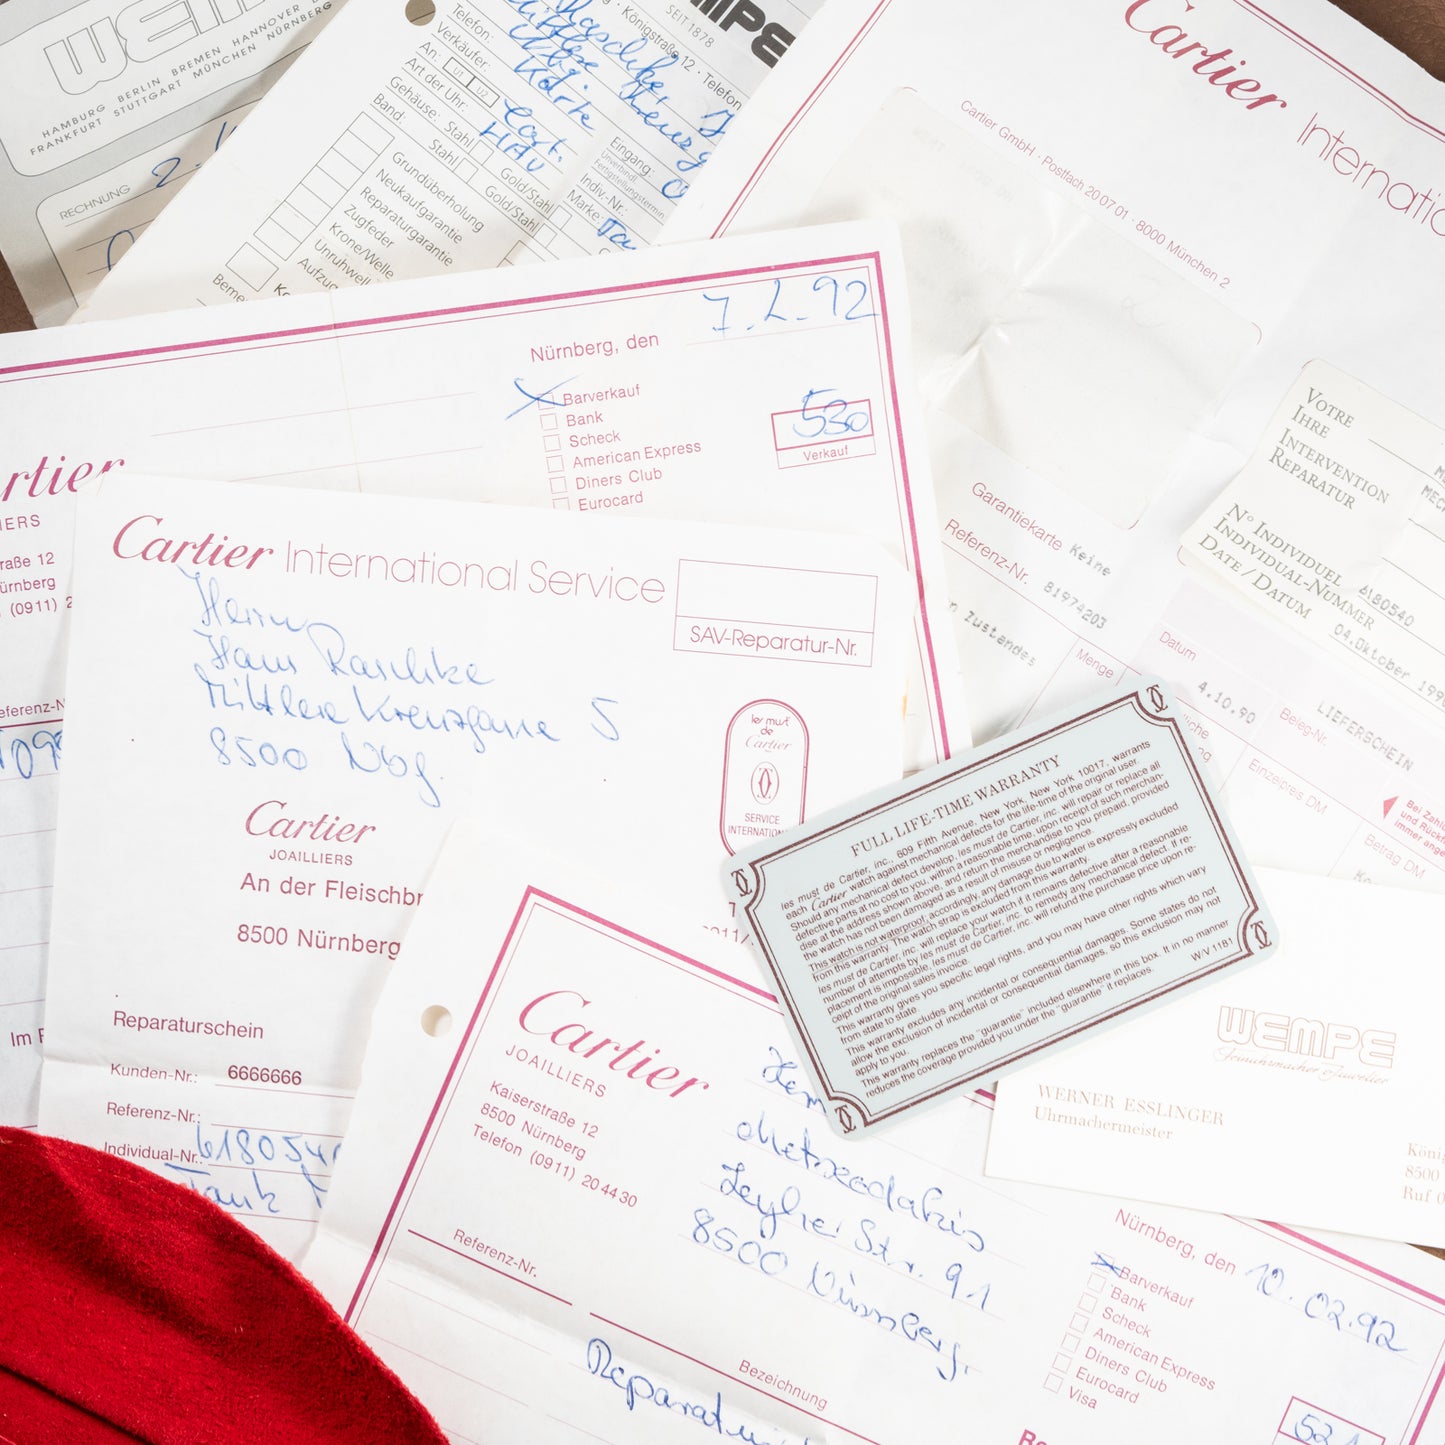 WEMPE
HAMBURG BERLIN BREMEN HANNOVER
FRANKFURT STUTTGART MÜNCHEN NÜRNBERG
RECHNUNG
SEIT 1878
Königstraße 12 · Telefon
Telefon:
Verkäufer:
An: U1 U2
Art der Uhr:
Gehäuse: Stahl Gold/Stahl
Band: Stahl Gold/Stahl
Grundüberholung
Neukaufgarantie
Reparaturgarantie
Zugfeder
Krone/Welle
Unruhwell
Aufzug
Eingang:
Unverbindl.
Fertigstellungstermin
Indiv-Nr.:
Marke:
Cartier International
Cartier GmbH · Postfach 20 07 01 · 8000 München 2
Garantiekarte Keine
Referenz-Nr. 81974203
Zustandes
Menge
Datum
4.10.90
Beleg-Nr.
LIEFERSCHEIN
Einzelpreis DM
Betrag DM
VOTRE
IHRE
INTERVENTION
REPARATUR
N° INDIVIDUEL
INDIVIDUAL-NUMMER 6180540
DATE / DATUM 04.Oktober 199
Nürnberg, den 7.2.92
Barverkauf
Bank
Scheck
American Express
Diners Club
Eurocard
530
Verkauf
rtier
IERS
raße 12
ürnberg
(0911) 2
Cartier International Service
SAV-Reparatur-Nr.
Herrn
Hans Raschke
Mittlere Kreuzgasse 5
8500 Nbg.
les must
de
Cartier
SERVICE
INTERNATION
Cartier
JOAILLIERS
An der Fleischbr
8500 Nürnberg
Reparaturschein
Kunden-Nr.: 6666666
Referenz-Nr.:
Individual-Nr.: 6180540
Tank
FULL LIFE-TIME WARRANTY
les must de Cartier, inc., 609 Fifth Avenue, New York, New York 10017, warrants
each Cartier watch against mechanical defects for the life-time of the original user.
Should any mechanical defect develop, les must de Cartier, inc. will repair or replace all
defective parts at no cost to you, within a reasonable time, upon receipt of such merchan-
dise at the address shown above, and return the merchandise to you prepaid, provided
the watch has not been damaged as a result of misuse or negligence.
This watch is not waterproof; accordingly, any damage due to water is expressly excluded
from this warranty. The watch strap is excluded from this warranty.
les must de Cartier, inc. will replace your watch if it remains defective after a reasonable
number of attempts by les must de Cartier, inc. to remedy any mechanical defect. If re-
placement is impossible, les must de Cartier, inc. will refund the purchase price upon re-
ceipt of the original sales invoice.
This warranty gives you specific legal rights, and you may have other rights which vary
from state to state.
This warranty excludes any incidental or consequential damages. Some states do not
allow the exclusion of incidental or consequential damages, so this exclusion may not
apply to you.
This warranty replaces the "guarantie" included elsewhere in this box. It in no manner
reduces the coverage provided you under the "guarantie" it replaces.
W/V 1181
WEMPE
Feinuhrmacher & Juwelier
WERNER ESSLINGER
Uhrmachermeister
König
8500
Ruf 0
Cartier
JOAILLIERS
Kaiserstraße 12
8500 Nürnberg
Telefon (0911) 20 44 30
Leyher Str. 91
8500 Nürnberg.
Referenz-Nr.
Bezeichnung
Nürnberg, den 10.02.92
Barverkauf
Bank
Scheck
American Express
Diners Club
Eurocard
Visa